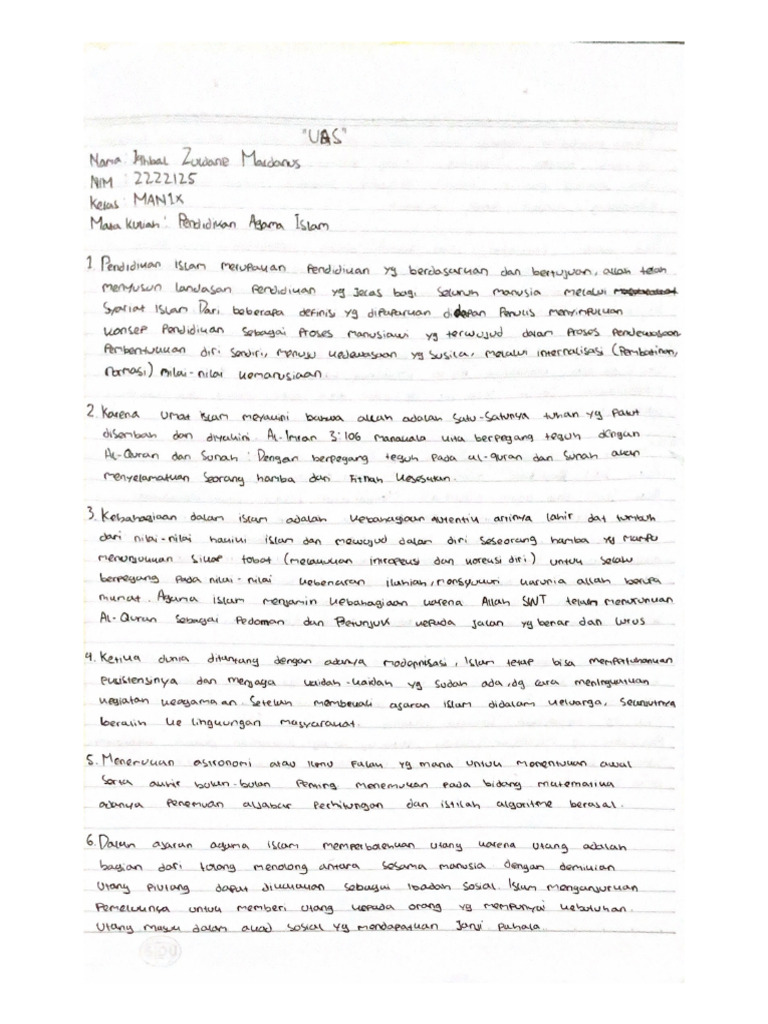 "UAS"
Nama: Ikhbal Zuldane Maldanus
NIM : 2222125
Kelas : MAN1X
Mata kuliah : Pendidikan Agama Islam
1. Pendidikan Islam merupakan pendidikan yg berdasarkan dan bertujuan, allah telah
menyusun landasan pendidikan yg jelas bagi seluruh manusia melalui
Syariat Islam Dari beberapa definisi yg dipaparkan didepan Penulis menyimpulkan
konsep Pendidikan Sebagai Proses manusiawi yg terwujud dalam Proses Pendewasaan
Pembentukan diri sendiri, menuju kedewasaan yg susila, melalui internalisasi (Pembatinan,
) nilai-nilai kemanusiaan.
2. Karena umat islam meyakini bahwa allah adalah Satu-Satunya tuhan yg Patut
disembah dan diyakini. AL-Imran 3:106 manakala kita berpegang teguh dengan
AL-Quran dan Sunah : Dengan berpegang teguh Pada al-quran dan Sunah akan
menyelamatkan Seorang hamba dari Fitnah kesesatan.
3. Kebahagiaan dalam islam adalah kebahagiaan autentik artinya lahir dat tumbuh
dari nilai-nilai hakiki islam dan mewujud dalam diri seseorang hamba yg mampu
menunjukkan Sikap tobat (melakukan introfeksi dan koreksi diri) untuk selalu
berpegang Pada nilai-nilai kebenaran ilahiah, mensyukuri karunia allah berupa
nikmat. Agama islam menjamin kebahagiaan karena Allah SWT telah menurunkan
AL-Quran Sebagai Pedoman dan Petunjuk kepada jalan yg benar dan lurus
4. Ketika dunia dituntang dengan adanya modernisasi, Islam tetap bisa mempertahankan
exsistensinya dan menjaga kaidah-kaidah yg sudah ada, dg cara meningkatkan
kegiatan keagamaan Setelah membekali ajaran islam didalam keluarga, Selanjutnya
beralih ke lingkungan masyarakat.
5. Menemukan astronomi atau ilmu falah yg mana untuk menentukan awal
serta akhir bulan-bulan Penting menemukan Pada bidang matematika
adanya Penemuan aljabar Perhitungan dan istilah algoritme berasal.
6. Dalam ajaran agama islam memperbolehkan utang karena utang adalah
bagian dari tolong menolong antara sesama manusia dengan demikian
utang piutang dapat dikatakan sebagai ibadah Sosial. Islam menganjurkan
Pemeluknya untuk memberi utang kepada orang yg mempunyai kebutuhan.
Utang masuk dalam akad sosial yg mendapatkan Janji Pahala.